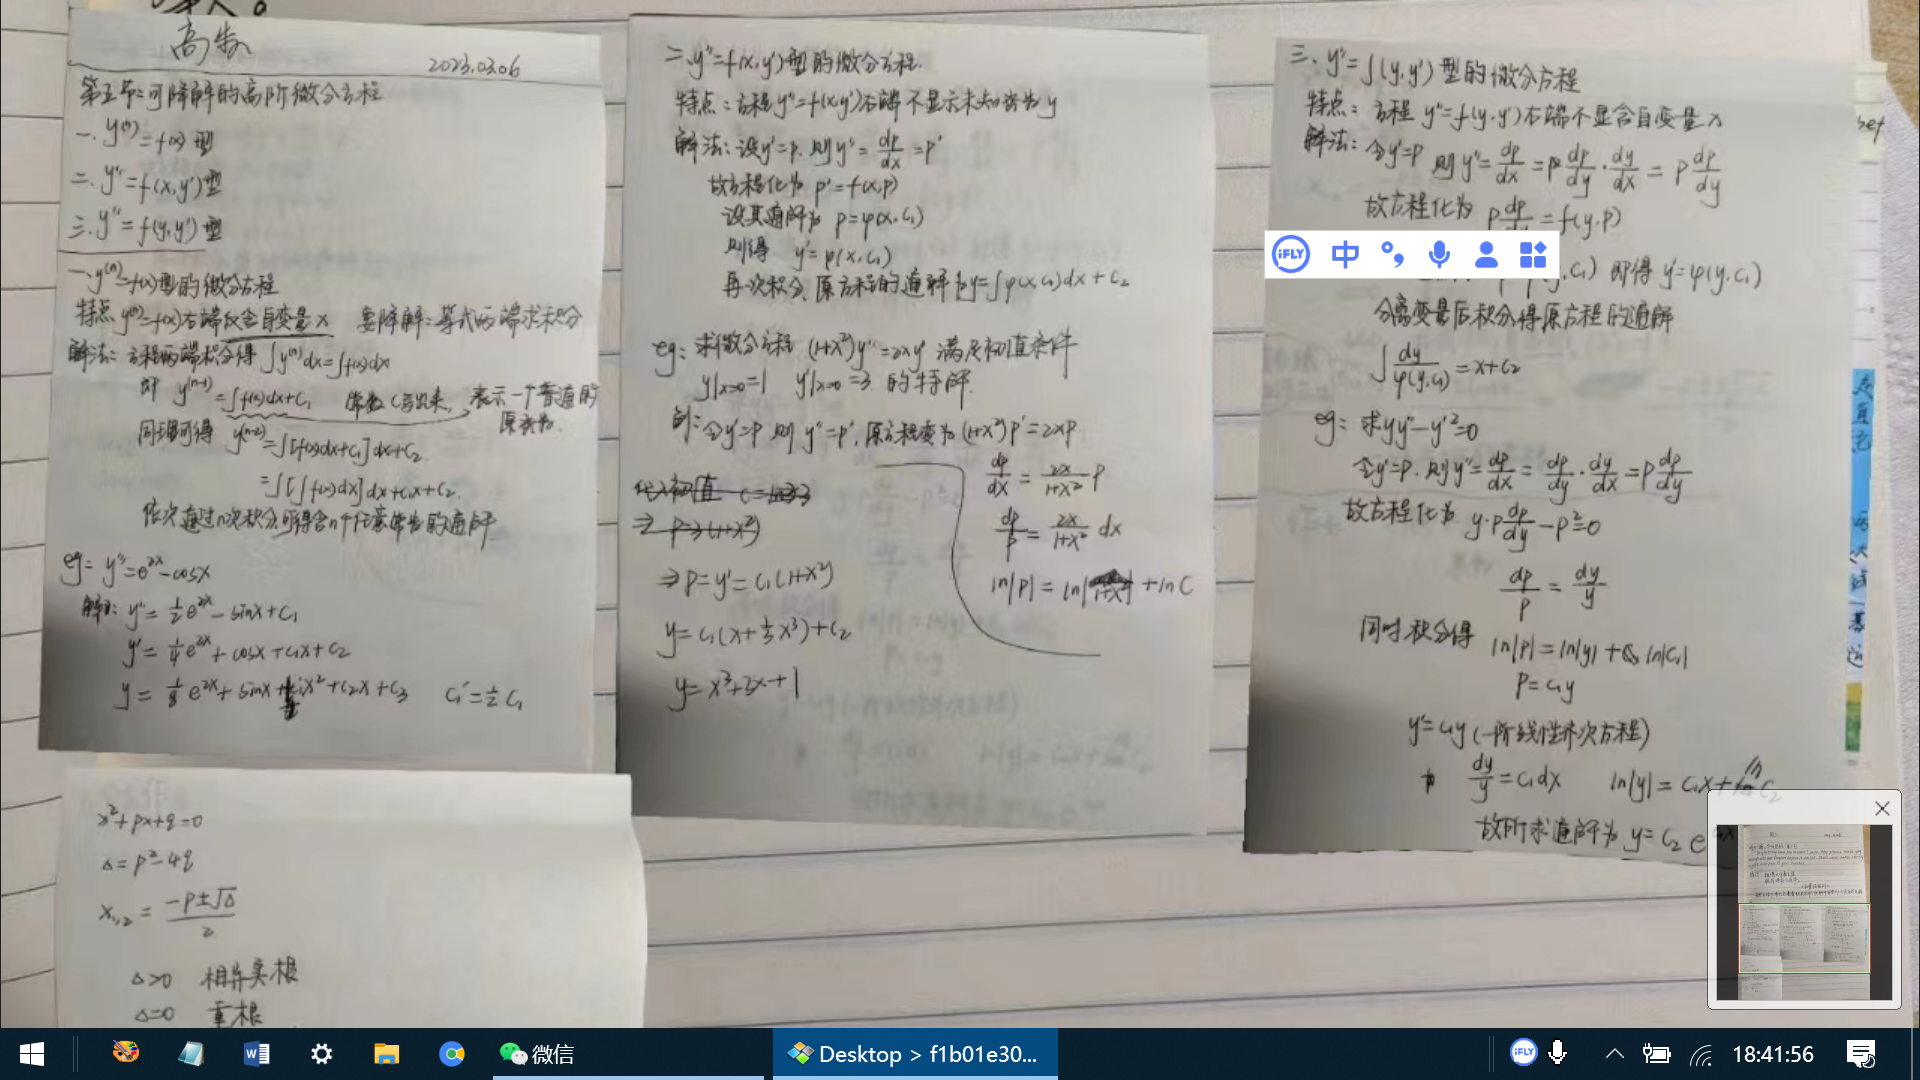 高数
2023.03.06
第五节:可降解的高阶微分方程
一.y⁽ⁿ⁾=f(x)型
二.y''=f(x,y')型
三.y''=f(y,y')型
一.y⁽ⁿ⁾=f(x)型的微分方程
特点 y⁽ⁿ⁾=f(x)右端仅含自变量x 要降解:等式两端求积分
解法:方程两端积分得 ∫y⁽ⁿ⁾dx=∫f(x)dx
即 y⁽ⁿ⁻¹⁾=∫f(x)dx+C₁ 常数C写出来,表示一个普通的原函数.
同理可得 y⁽ⁿ⁻²⁾=∫[∫f(x)dx+C₁]dx+C₂
=∫[∫f(x)dx]dx+C₁x+C₂.
依次通过n次积分,可得含n个任意常数的通解
eg: y'''=e²ˣ-cosx
解: y''=½e²ˣ-sinx+C₁
y'=¼e²ˣ+cosx+C₁x+C₂
y=⅛e²ˣ+sinx+C₁'x²+C₂x+C₃ C₁'=½C₁
x²+px+q=0
Δ=p²-4q
x₁,₂=(-p±√Δ)/2
Δ>0 相异实根
Δ=0 重根
二.y''=f(x,y')型的微分方程.
特点:方程y''=f(x,y')右端不显示未知函数y
解法:设y'=p.则y''=dp/dx=p'
故方程化为 p'=f(x,p)
设其通解为 p=φ(x,C₁)
则得 y'=φ(x,C₁)
再一次积分,原方程的通解为y=∫φ(x,C₁)dx+C₂
eg:求微分方程 (1+x²)y''=2xy' 满足初值条件
y|x=0=1 y'|x=0=3 的特解.
解:令y'=p 则 y''=p',原方程变为(1+x²)p'=2xp
dp/dx=2x/(1+x²) p
dp/p=2x/(1+x²) dx
ln|p|=ln|1+x²|+lnC
代入初值 C=3
⇒ p=3(1+x²)
⇒p=y'=C₁(1+x²)
y=C₁(x+⅓x³)+C₂
y=x³+3x+1
三.y''=f(y,y')型的微分方程
特点:方程 y''=f(y,y')右端不显含自变量x
解法:令y'=p 则y''=dp/dx=p dp/dy·dy/dx=p dp/dy
故方程化为 p dp/dy=f(y,p)
,C₁) 即得 y'=φ(y,C₁)
分离变量后积分得原方程的通解
∫dy/φ(y,C₁)=x+C₂
eg:求yy''-y'²=0
令y'=p.则y''=dp/dx=dp/dy·dy/dx=p dp/dy
故方程化为 y·p dp/dy-p²=0
dp/p=dy/y
同时积分得 ln|p|=ln|y|+ln|C₁|
p=C₁y
y'=C₁y(一阶线性齐次方程)
dy/y=C₁dx ln|y|=C₁x+lnC₂
故所求通解为 y=C₂e
iFLY
中
微信
Desktop > f1b01e30...
iFLY
18:41:56